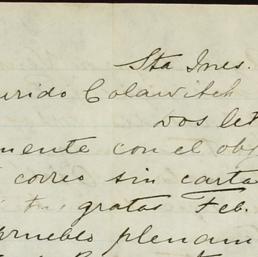 Sta Ines.
urido Colawitch
dos let
mente con el obj
correo sin carta
gratas Feb.
prueblo plenam